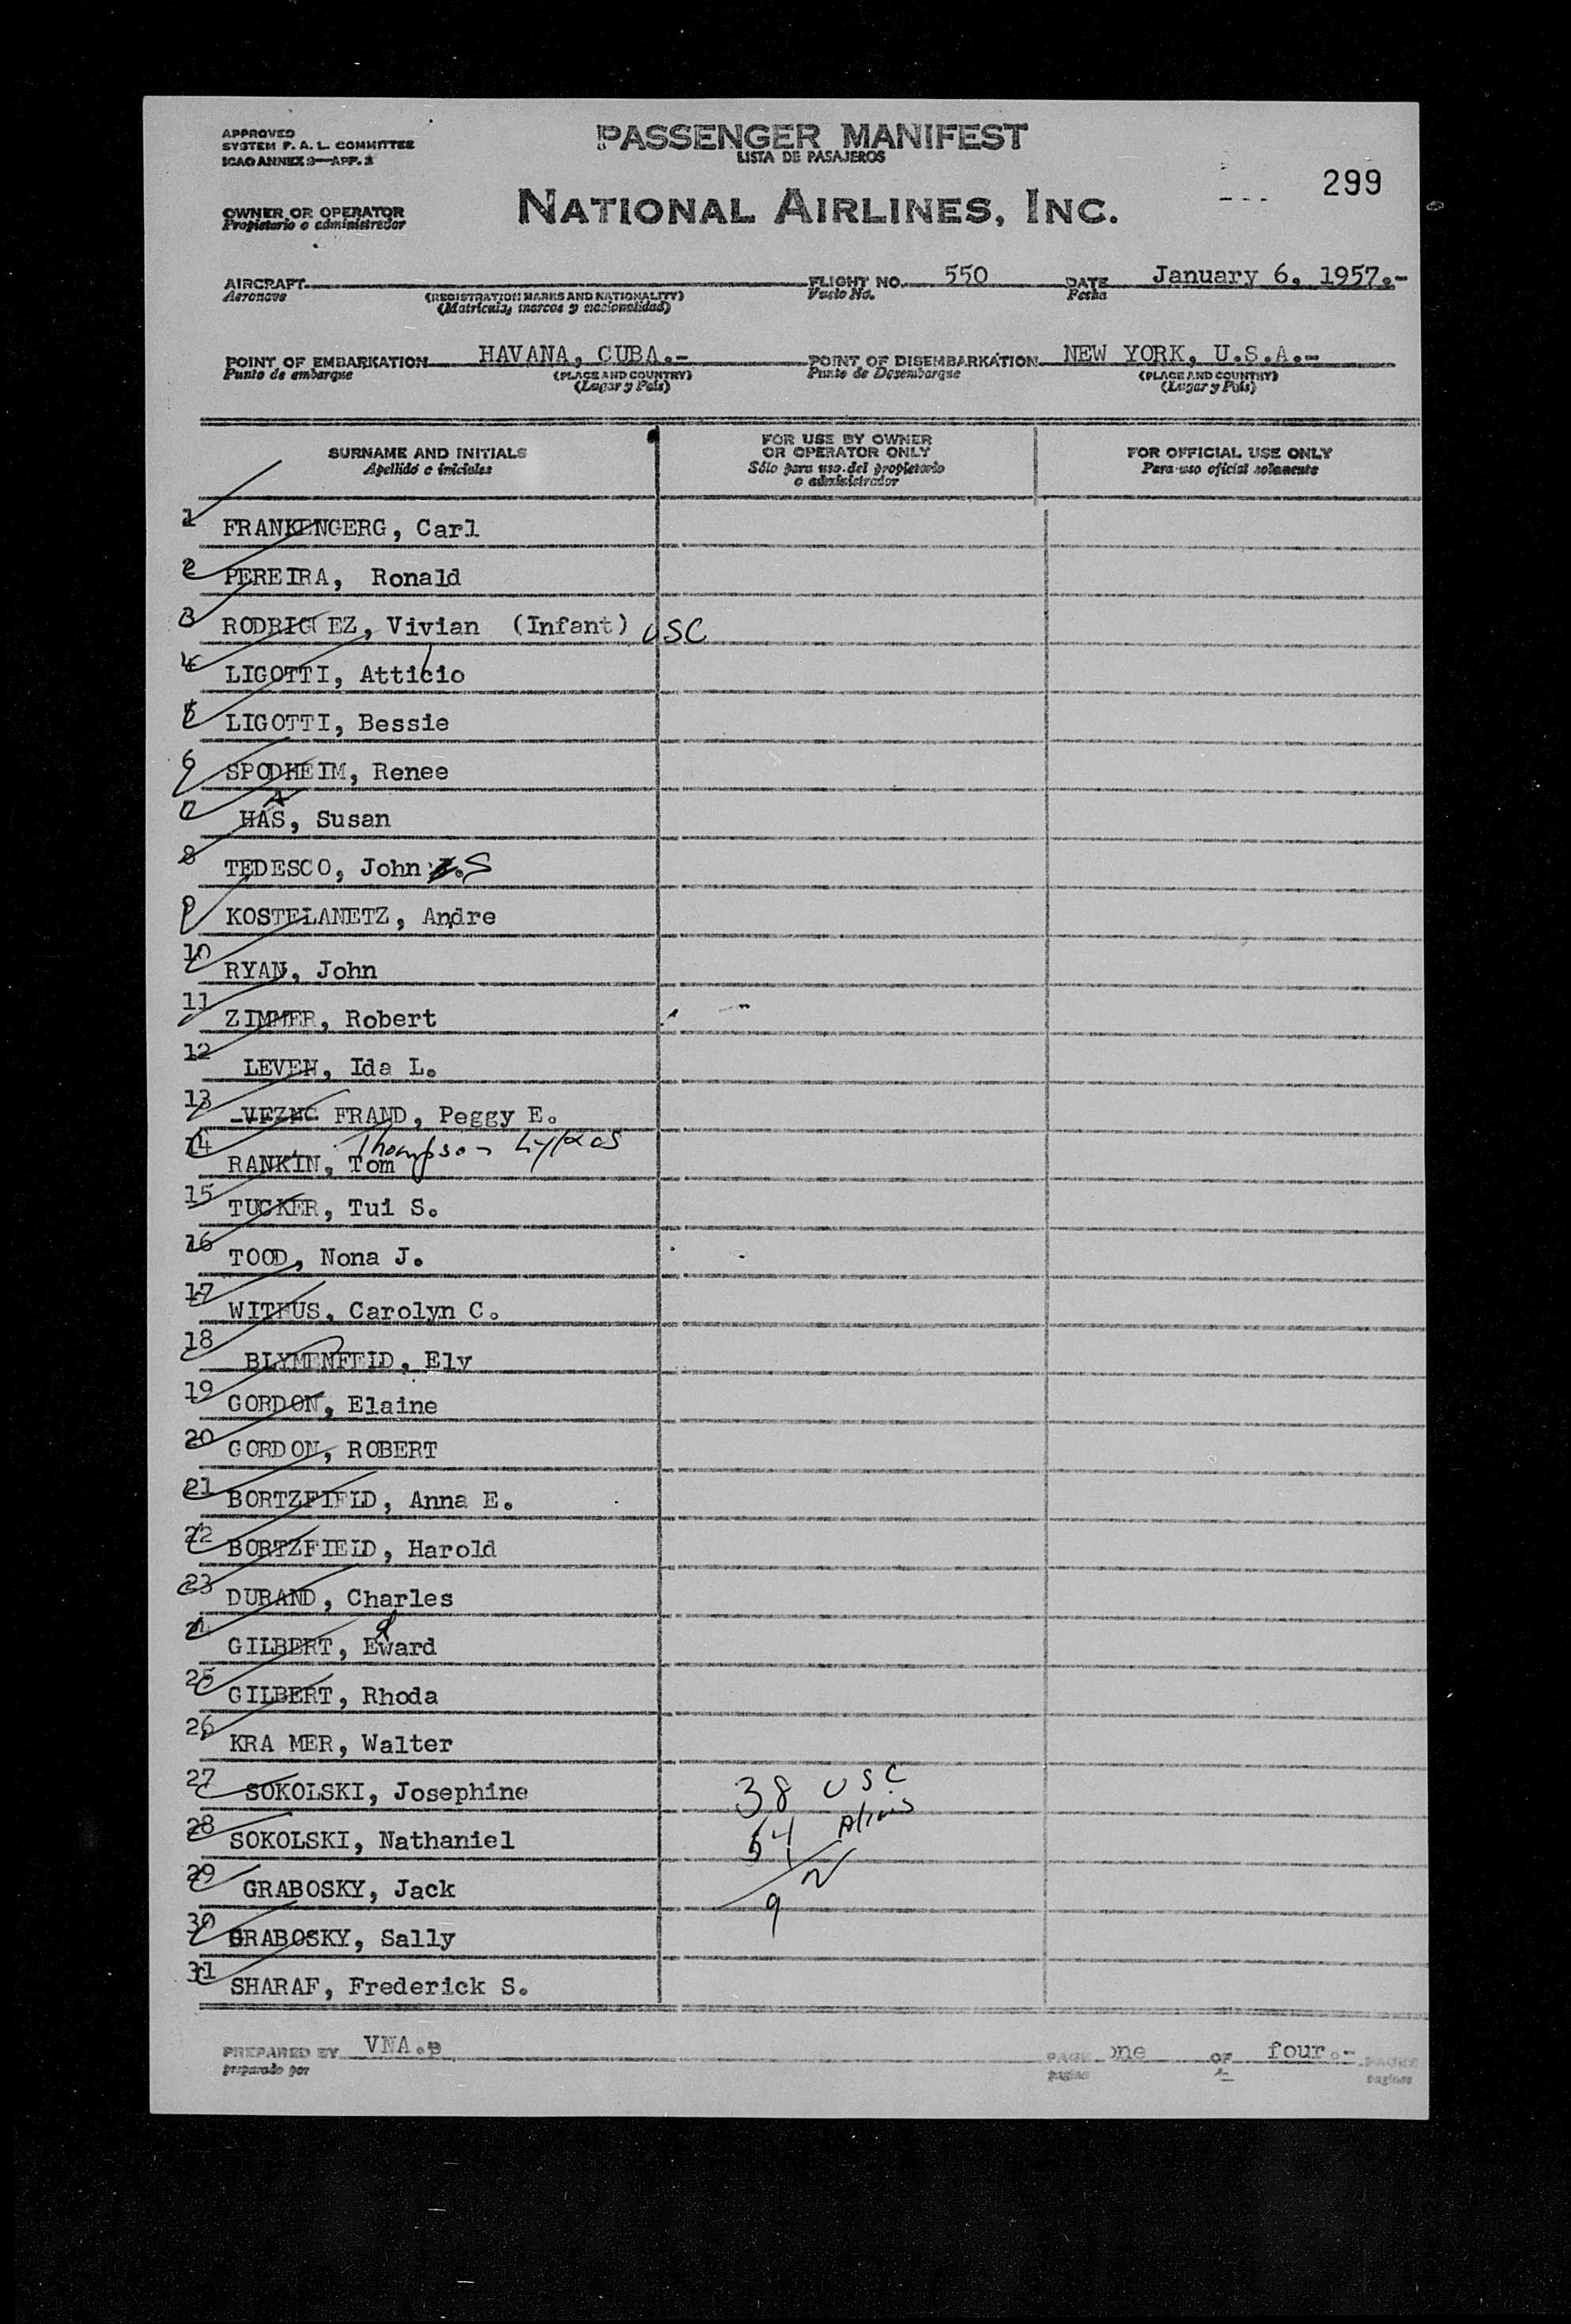 APPROVED
SYSTEM F. A. L. COMMITTEE
ICAO ANNEX 9—APP. 3
PASSENGER MANIFEST
LISTA DE PASAJEROS
299
OWNER OR OPERATOR
Propietario o administrador
NATIONAL AIRLINES, INC.
AIRCRAFT
Aeronave
(REGISTRATION MARKS AND NATIONALITY)
(Matricula, marcas y nacionalidad)
FLIGHT NO. 550
Vuelo No.
DATE January 6, 1957.-
Fecha
POINT OF EMBARKATION HAVANA, CUBA.-
Punto de embarque
(PLACE AND COUNTRY)
(Lugar y País)
POINT OF DISEMBARKATION NEW YORK, U.S.A.-
Punto de Desembarque
(PLACE AND COUNTRY)
(Lugar y País)
SURNAME AND INITIALS
Apellido e iniciales
FOR USE BY OWNER
OR OPERATOR ONLY
Sólo para uso del propietario
o administrador
FOR OFFICIAL USE ONLY
Para uso oficial solamente
1 FRANKENGERG, Carl
2 PEREIRA, Ronald
3 RODRIG EZ, Vivian (Infant) USC
4 LIGOTTI, Atticio
5 LIGOTTI, Bessie
6 SPODHEIM, Renee
7 HAS, Susan
A
8 TEDESCO, John S
9 KOSTELANETZ, Andre
10 RYAN, John
11 ZIMMER, Robert
12 LEVEN, Ida L.
13 FRAND, Peggy E.
Thompson
14 RANKIN, Tom
15 TUCKER, Tui S.
16 TOOD, Nona J.
17 WITFUS, Carolyn C.
18 BLYMENFELD, Ely
19 GORDON, Elaine
20 GORDON, ROBERT
21 BORTZFIELD, Anna E.
22 BORTZFIELD, Harold
23 DURAND, Charles
d
24 GILBERT, Eward
25 GILBERT, Rhoda
26 KRA MER, Walter
27 SOKOLSKI, Josephine
38 USC
28 SOKOLSKI, Nathaniel
54 Aliens
29 GRABOSKY, Jack
9
30 GRABOSKY, Sally
31 SHARAF, Frederick S.
PREPARED BY VNA.
preparado por
PAGE one OF four.- PAGES
pagina
paginas